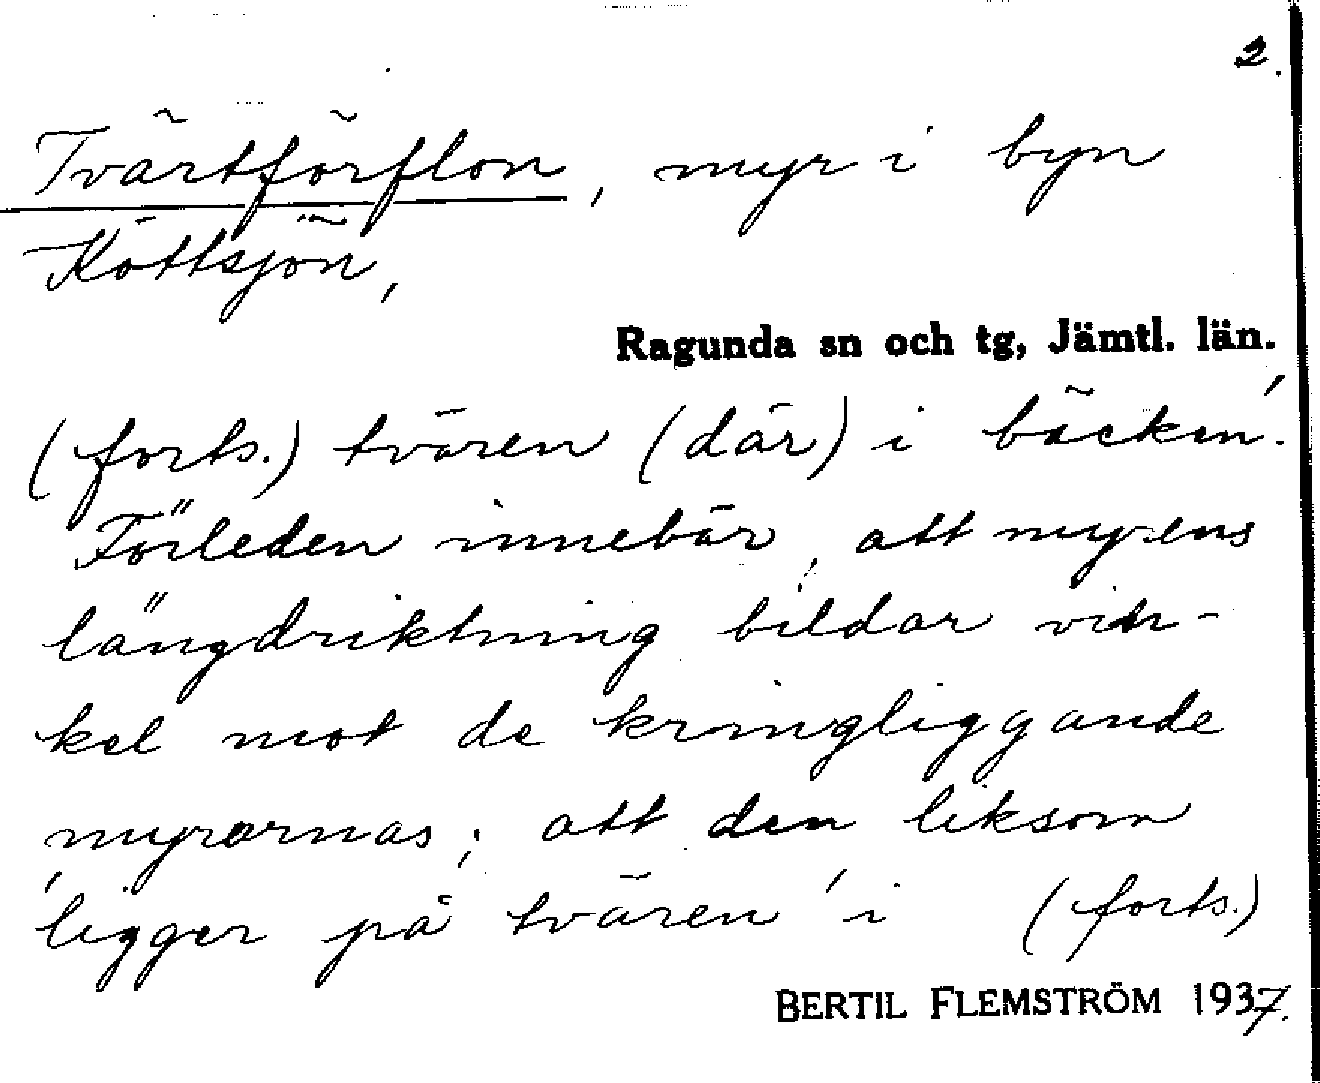 2.
Tvärtförflon, myr i byn
Köttsjön,
Ragunda sn och tg, Jämtl. län.
(forts.) tvären (där) i bäcken'.
Förleden innebär, att myrens
längdriktning bildar vin-
kel mot de kringliggande
myrarnas; att den liksom
'ligger på tvären' i (forts.)
BERTIL FLEMSTRÖM 1937.